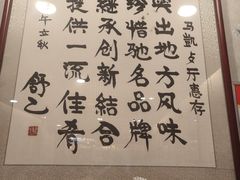 马凯餐厅惠存
突出地方风味
珍惜驰名品牌
继承创新结合
提供一流佳肴
午立秋
舒乙